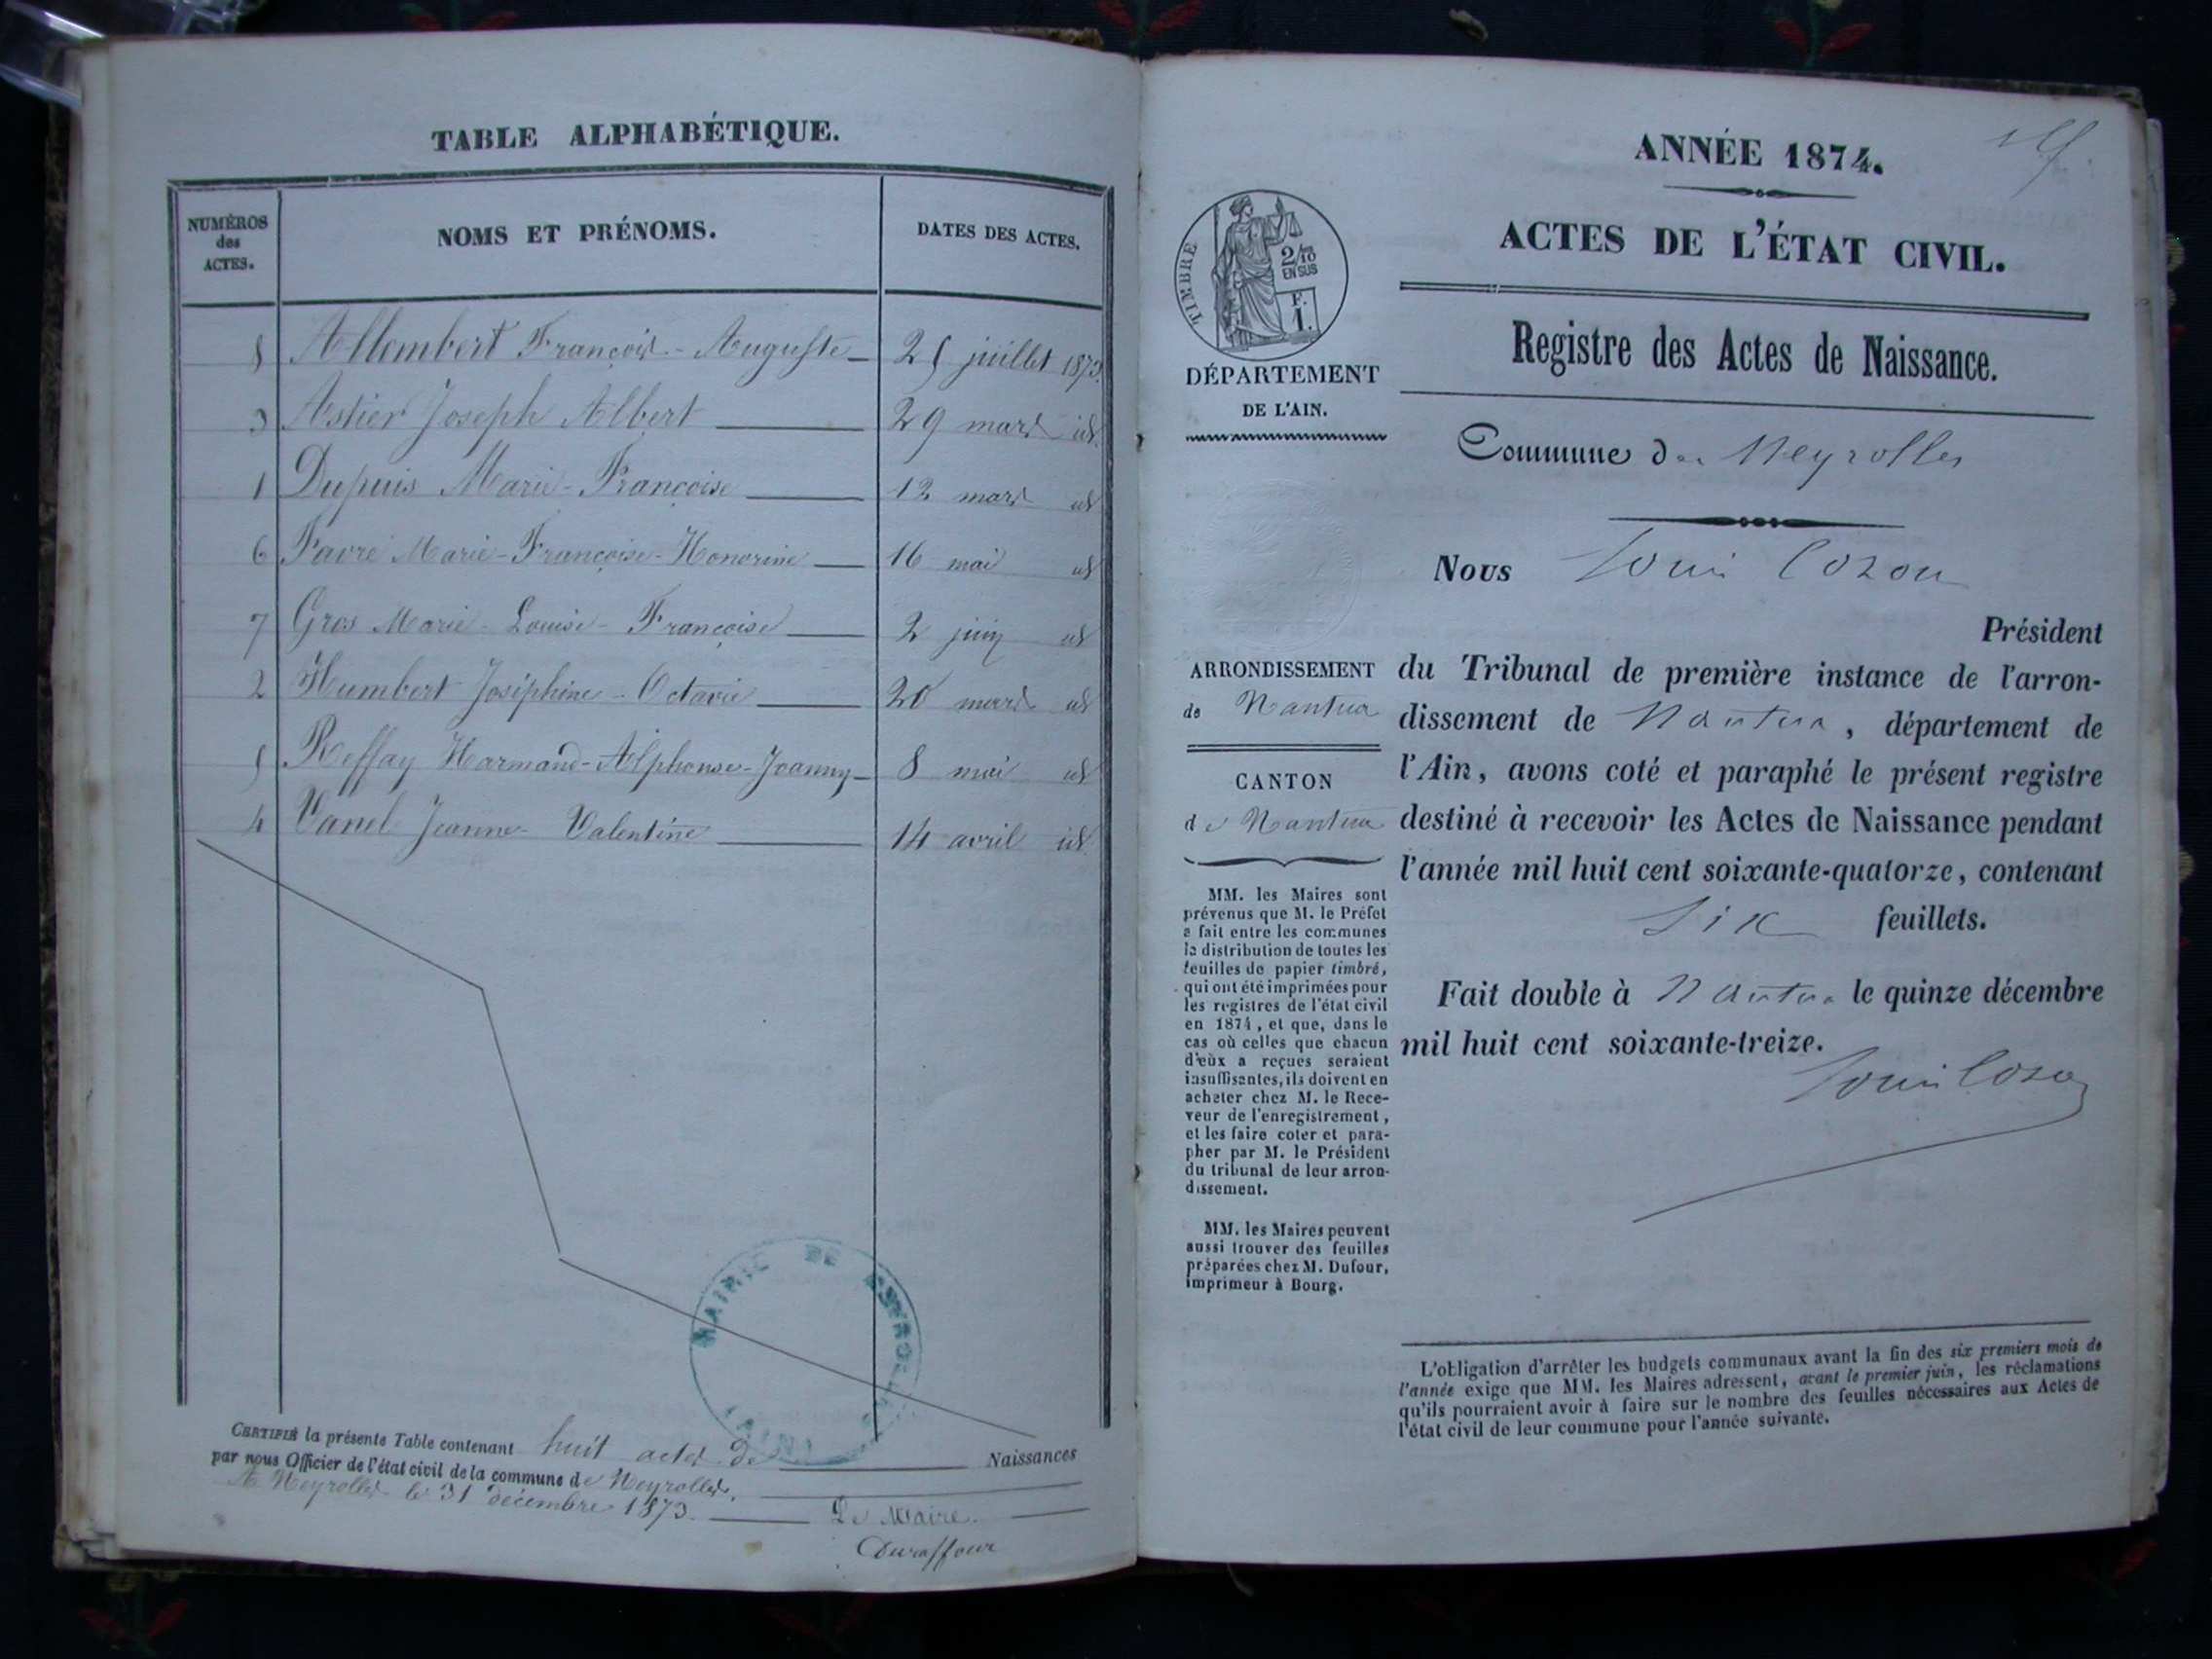 TABLE ALPHABÉTIQUE.
NUMÉROS des ACTES. NOMS ET PRÉNOMS. DATES DES ACTES.
8 Allombert François-Auguste 25 juillet 1873.
3 Astier Joseph Albert 29 mars id
1 Dupuis Marie-Françoise 12 mars id
6 Favre Marie-Françoise-Honorine 16 mai id
7 Gros Marie-Louise-Françoise 2 juin id
2 Humbert Joséphine-Octavie 20 mars id
5 Reffay Harmand-Alphonse-Joanny 8 mai id
4 Vanel Jeanne-Valentine 14 avril id
MAIRIE DE NEYROLLES (AIN)
CERTIFIÉ la présente Table contenant huit actes de Naissances
par nous Officier de l'état civil de la commune de Neyrolles.
A Neyrolles le 31 décembre 1873. Le Maire.
Duraffour
ANNÉE 1874.
ACTES DE L'ÉTAT CIVIL.
TIMBRE
2/10
EN SUS
F.
1.
Registre des Actes de Naissance.
DÉPARTEMENT
DE L'AIN.
Commune des Neyrolles
Nous Louis Cozon
Président
du Tribunal de première instance de l'arron-
dissement de Nantua, département de
l'Ain, avons coté et paraphé le présent registre
destiné à recevoir les Actes de Naissance pendant
l'année mil huit cent soixante-quatorze, contenant
six feuillets.
Fait double à Nantua le quinze décembre
mil huit cent soixante-treize.
Louis Cozon
ARRONDISSEMENT
de Nantua
CANTON
de Nantua
MM. les Maires sont
prévenus que M. le Préfet
a fait entre les communes
la distribution de toutes les
feuilles de papier timbré,
qui ont été imprimées pour
les registres de l'état civil
en 1874, et que, dans le
cas où celles que chacun
d'eux a reçues seraient
insuffisantes, ils doivent en
acheter chez M. le Rece-
veur de l'enregistrement,
et les faire coter et para-
pher par M. le Président
du tribunal de leur arron-
dissement.
MM. les Maires peuvent
aussi trouver des feuilles
préparées chez M. Dufour,
imprimeur à Bourg.
L'obligation d'arrêter les budgets communaux avant la fin des six premiers mois de
l'année exige que MM. les Maires adressent, avant le premier juin, les réclamations
qu'ils pourraient avoir à faire sur le nombre des feuilles nécessaires aux Actes de
l'état civil de leur commune pour l'année suivante.